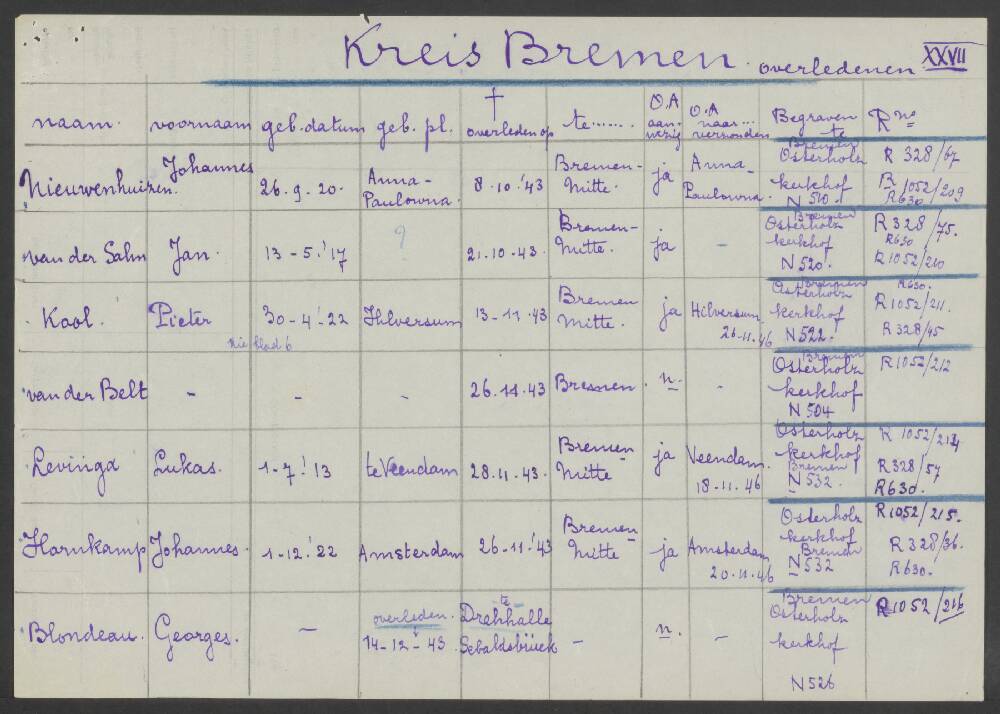 Kreis Bremen. overledenen XXVII
naam. voornaam geb. datum geb. pl. † overleden op te....... O.A aanwezig O.A naar... verzonden Begraven te R no
Nieuwenhuizen. Johannes 26.9.20. Anna-Paulowna. 8.10.'43 Bremen-Mitte. ja Anna-Paulowna. Bremen Osterholz kerkhof N 510. R 328/67 R 1052/209 R630
van der Sahn Jan. 13-5.'17 ? 21.10.43 Bremen-Mitte. ja - Bremen Osterholz kerkhof N 520. R 328/75. R630 R 1052/210
Kool. Pieter 30-4.'22 Hilversum 13-11.43 Bremen Mitte. ja Hilversum 26.11.46 Bremen Osterholz kerkhof N 522. R630. R 1052/211. R 328/45
zie blad 6
van der Belt - - - 26.11.43 Bremen. n. - Bremen Osterholz kerkhof N 504 R 1052/212
Levinga Lukas. 1-7.'13 te Veendam 28.11.43. Bremen Mitte ja Veendam. 18-11.46 Osterholz kerkhof Bremen N 532. R 1052/214 R 328/57 R630.
Harnkamp Johannes. 1-12.'22 Amsterdam 26-11.'43 Bremen Mitte ja Amsterdam 20.11.46 Osterholz kerkhof Bremen N 532 R 1052/215. R 328/36. R630.
Blondeau. Georges. - overleden 14-12-43 te Drehhalle Sebaldsbrück - n. - Bremen Osterholz kerkhof N 526 R 1052/216